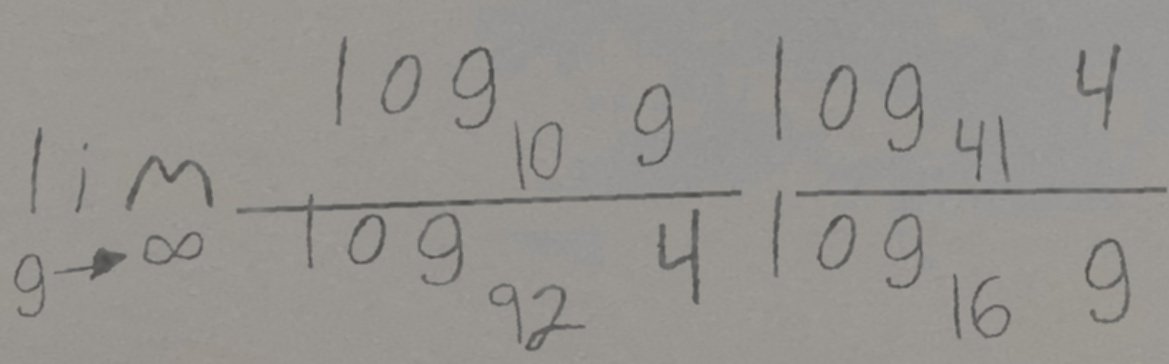 \lim_{g \to \infty} \frac{\log_{10} g}{\log_{92} 4} \frac{\log_{41} 4}{\log_{16} g}